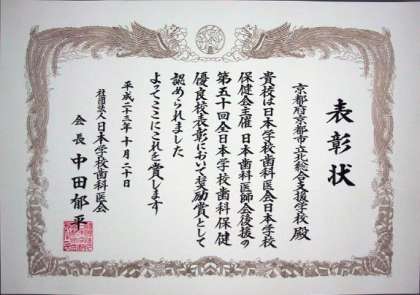 表彰状
京都府京都市立北総合支援学校 殿
貴校は日本学校歯科医会日本学校
保健会主催 日本歯科医師会後援の
第五十回全日本学校歯科保健
優良校表彰において奨励賞として
認められました
よってここにこれを賞します
平成二十三年十月二十日
社団法人日本学校歯科医会
会長 中田郁平